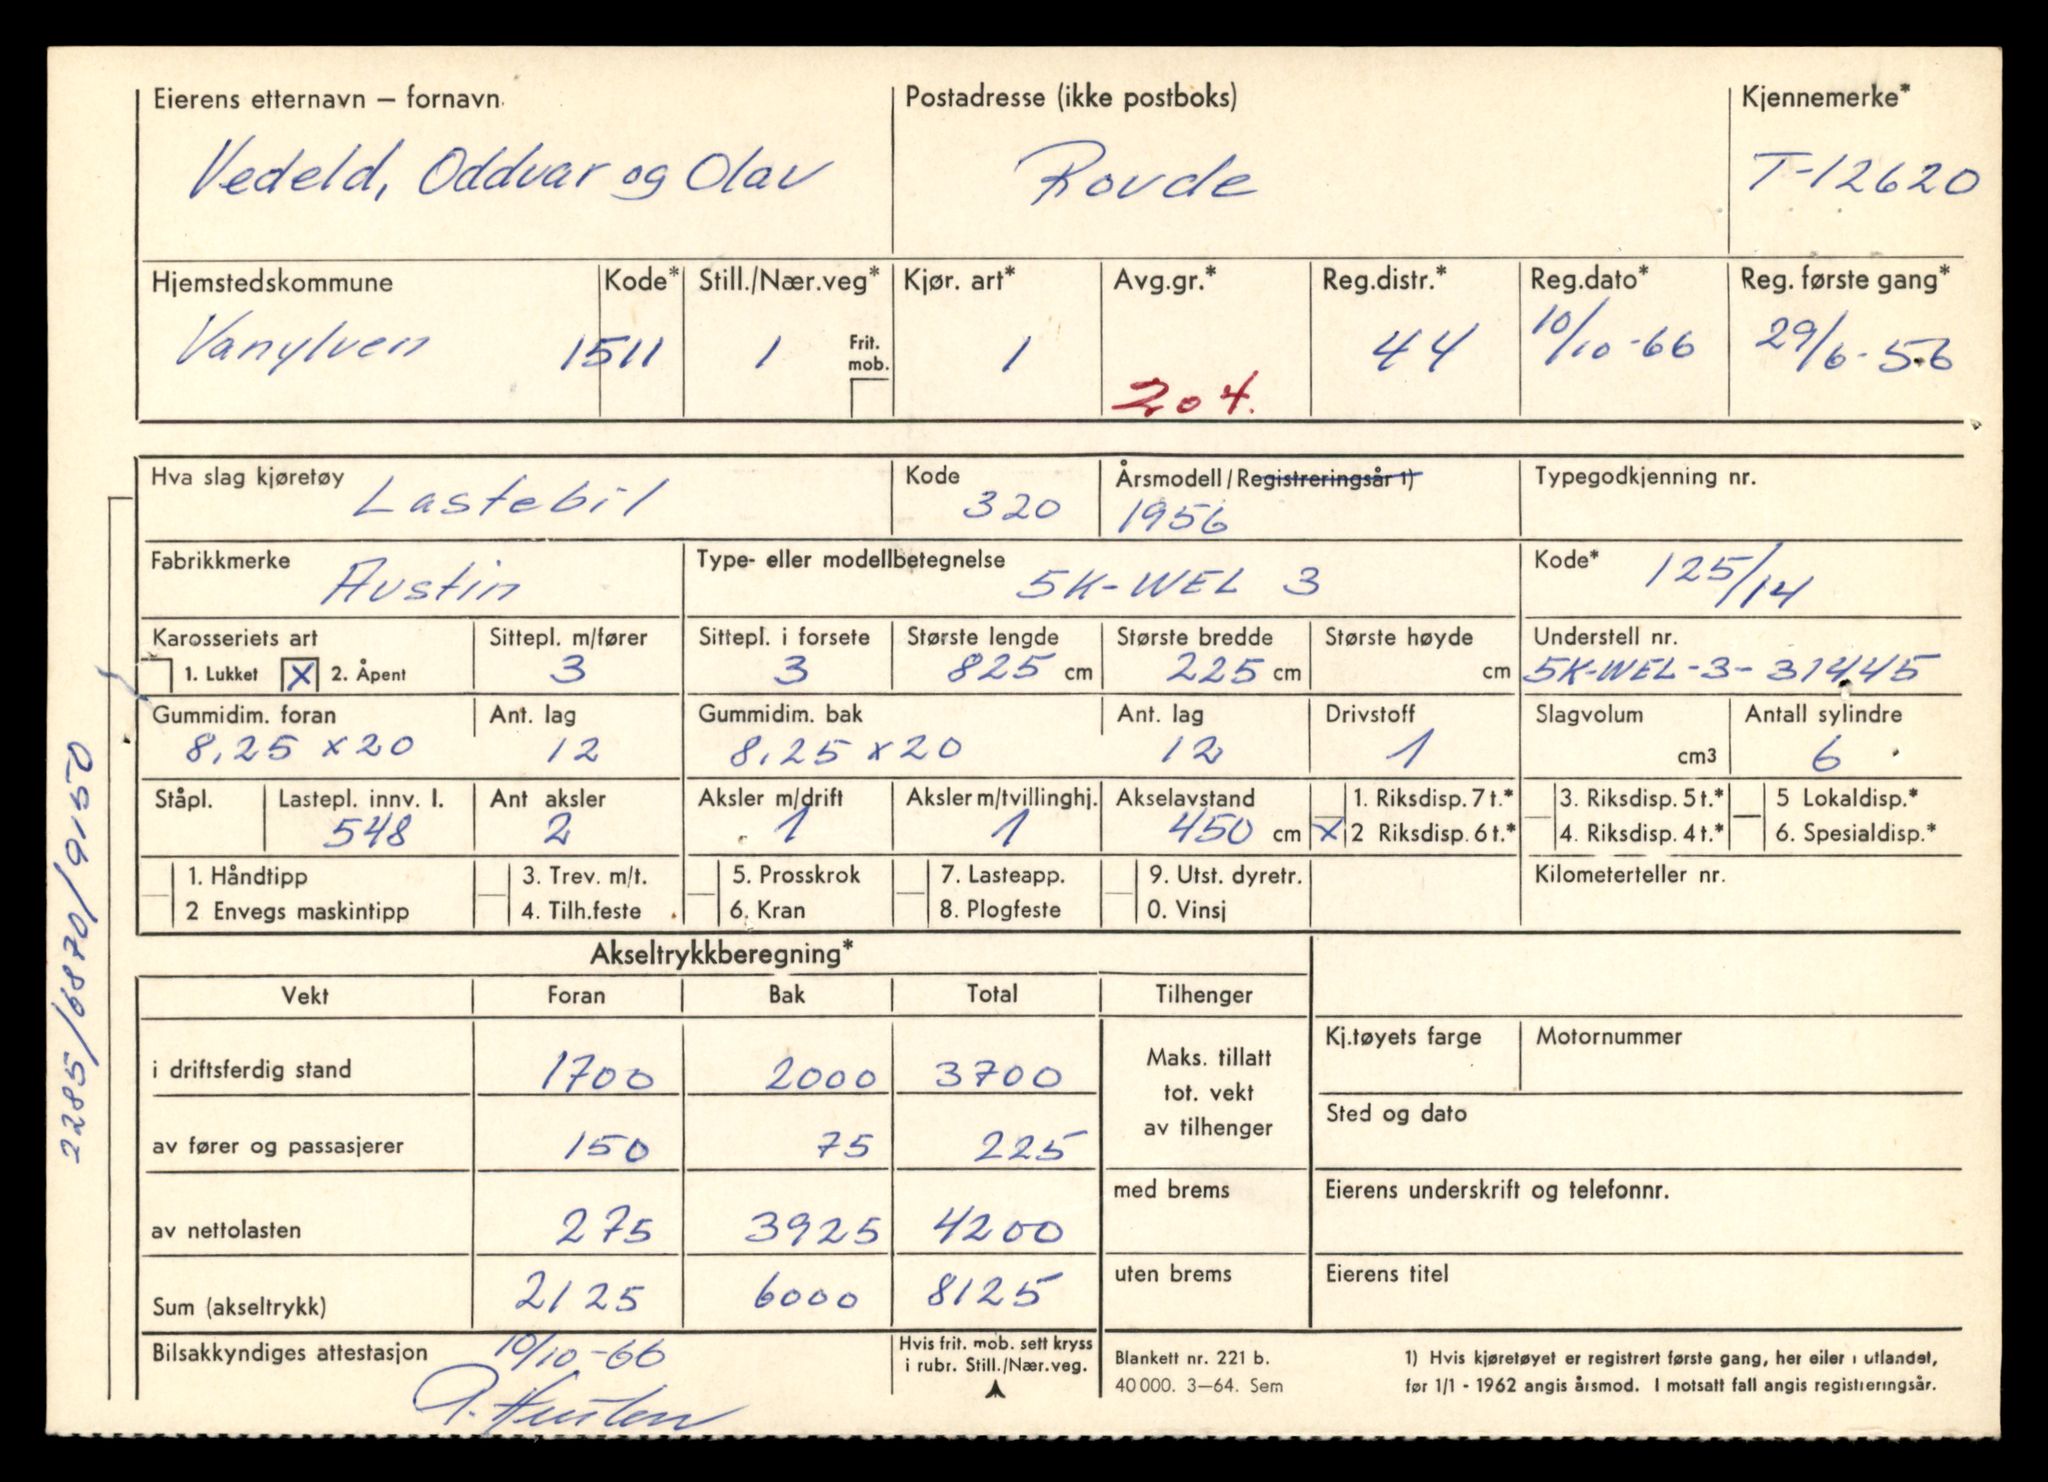 Eierens etternavn – fornavn Postadresse (ikke postboks) Kjennemerke*
Vedeld, Oddvar og Olav Rovde T-12620
Hjemstedskommune Kode* Still./Nær.veg* Kjør. art* Avg.gr.* Reg.distr.* Reg.dato* Reg. første gang*
Vanylven 1511 1 Frit. mob. 1 204. 44 10/10-66 29/6-56
Hva slag kjøretøy Kode Årsmodell/Registreringsår 1) Typegodkjenning nr.
Lastebil 320 1956
Fabrikkmerke Type- eller modellbetegnelse Kode*
Austin 5K-WEL 3 125/14
Karosseriets art Sittepl. m/fører Sittepl. i forsete Største lengde Største bredde Største høyde Understell nr.
1. Lukket X 2. Åpent 3 3 825 cm 225 cm cm 5K-WEL-3-31445
Gummidim. foran Ant. lag Gummidim. bak Ant. lag Drivstoff Slagvolum Antall sylindre
8,25 x 20 12 8,25 x 20 12 1 cm3 6
Ståpl. Lastepl. innv. l. Ant aksler Aksler m/drift Aksler m/tvillinghj. Akselavstand 1. Riksdisp. 7 t.* 3. Riksdisp. 5 t.* 5 Lokaldisp.*
548 2 1 1 450 cm X 2 Riksdisp. 6 t.* 4. Riksdisp. 4 t.* 6. Spesialdisp.*
1. Håndtipp 3. Trev. m/t. 5. Prosskrok 7. Lasteapp. 9. Utst. dyretr. Kilometerteller nr.
2 Envegs maskintipp 4. Tilh.feste 6. Kran 8. Plogfeste 0. Vinsj
Akseltrykkberegning*
Vekt Foran Bak Total Tilhenger
i driftsferdig stand 1700 2000 3700 Maks. tillatt tot. vekt av tilhenger Kj.tøyets farge Motornummer
av fører og passasjerer 150 75 225 Sted og dato
av nettolasten 275 3925 4200 med brems Eierens underskrift og telefonnr.
Sum (akseltrykk) 2125 6000 8125 uten brems Eierens titel
Bilsakkyndiges attestasjon 10/10-66
Hvis frit. mob. sett kryss
i rubr. Still./Nær.veg.
Blankett nr. 221 b.
40 000. 3–64. Sem
1) Hvis kjøretøyet er registrert første gang, her eller i utlandet,
før 1/1 - 1962 angis årsmod. I motsatt fall angis registreringsår.
2285/6870/9150